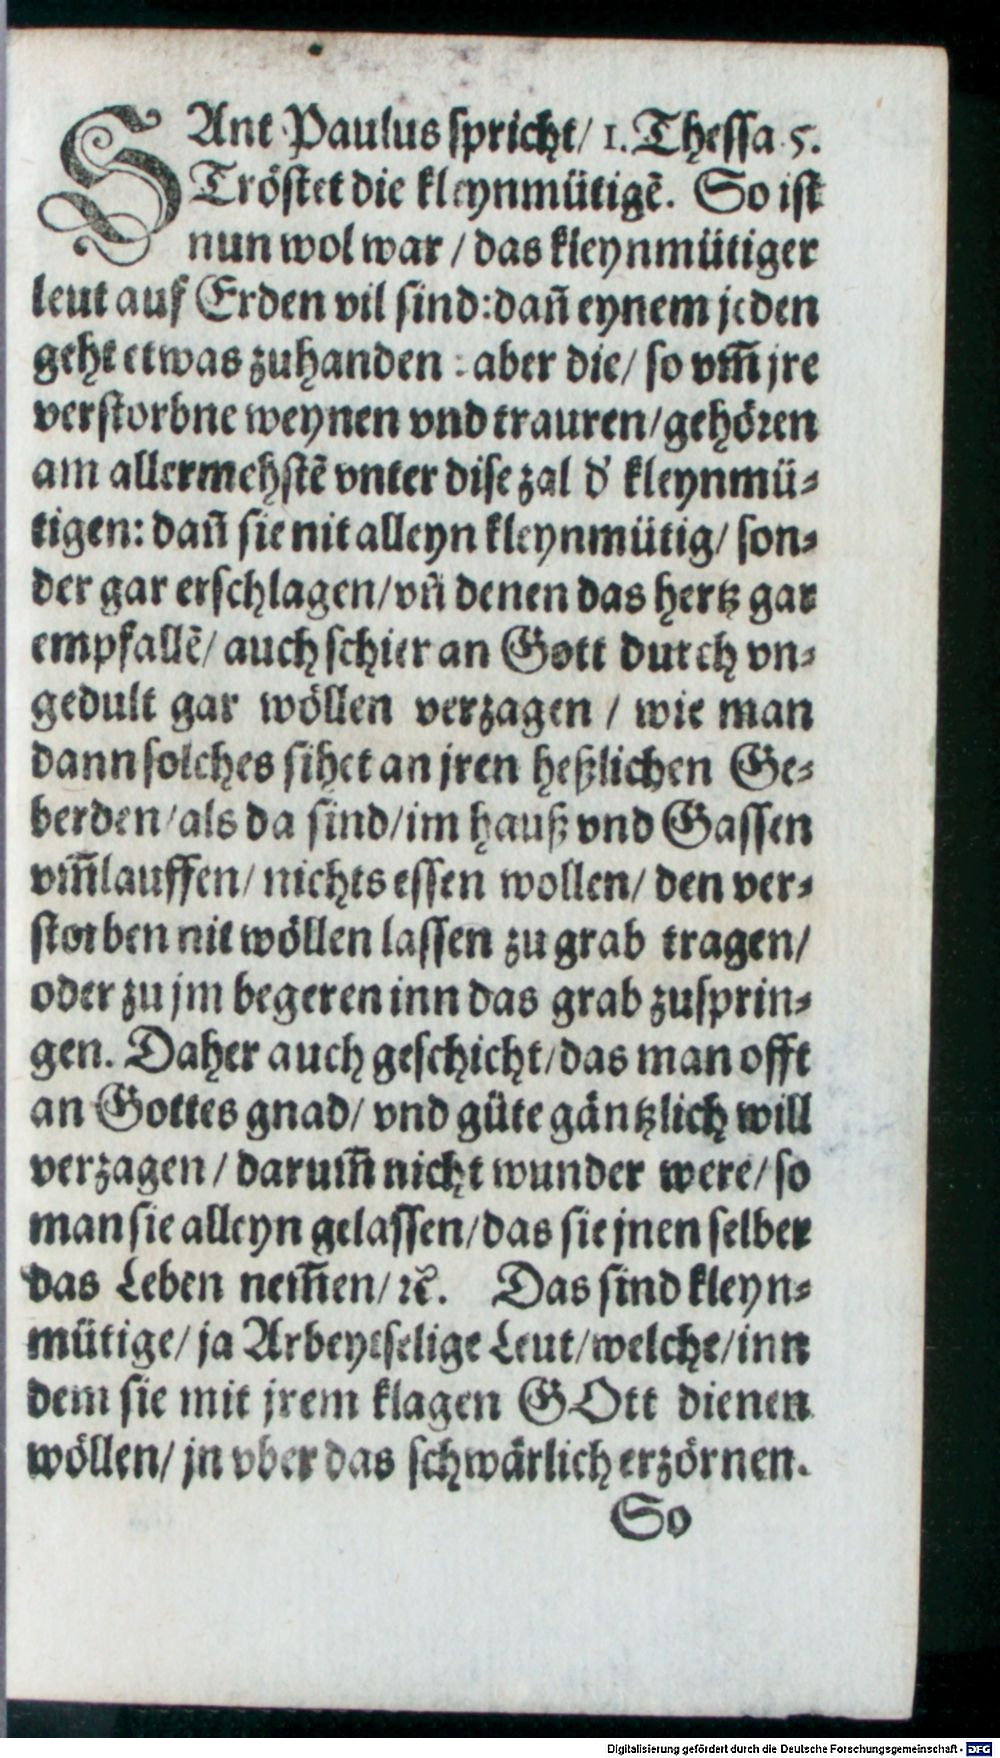 SAnt Paulus spricht/ 1. Thessa. 5.
Tröstet die kleynmütigẽ. So ist
nun wol war / das kleynmütiger
leut auf Erden vil sind: dañ eynem jeden
geht etwas zuhanden : aber die/ so vm̃ jre
verstorbne weynen vnd trauren/ gehören
am allermehstẽ vnter dise zal d' kleynmü-
tigen: dañ sie nit alleyn kleynmütig/ son-
der gar erschlagen/ vñ denen das hertz gar
empfallẽ/ auch schier an Gott durch vn-
gedult gar wöllen verzagen / wie man
dann solches sihet an jren heßlichen Ge-
berden/ als da sind/ im hauß vnd Gassen
vm̃lauffen/ nichts essen wollen/ den ver-
storben nit wöllen lassen zu grab tragen/
oder zu jm begeren inn das grab zusprin-
gen. Daher auch geschicht/ das man offt
an Gottes gnad/ vnd güte gäntzlich will
verzagen / darum̃ nicht wunder were/ so
man sie alleyn gelassen/ das sie jnen selber
das Leben nem̃en/ ꝛc̃. Das sind kleyn-
mütige/ ja Arbeytselige Leut/ welche/ inn
dem sie mit jrem klagen GOtt dienen
wöllen/ jn vber das schwärlich erzörnen.
So
Digitalisierung gefördert durch die Deutsche Forschungsgemeinschaft - DFG